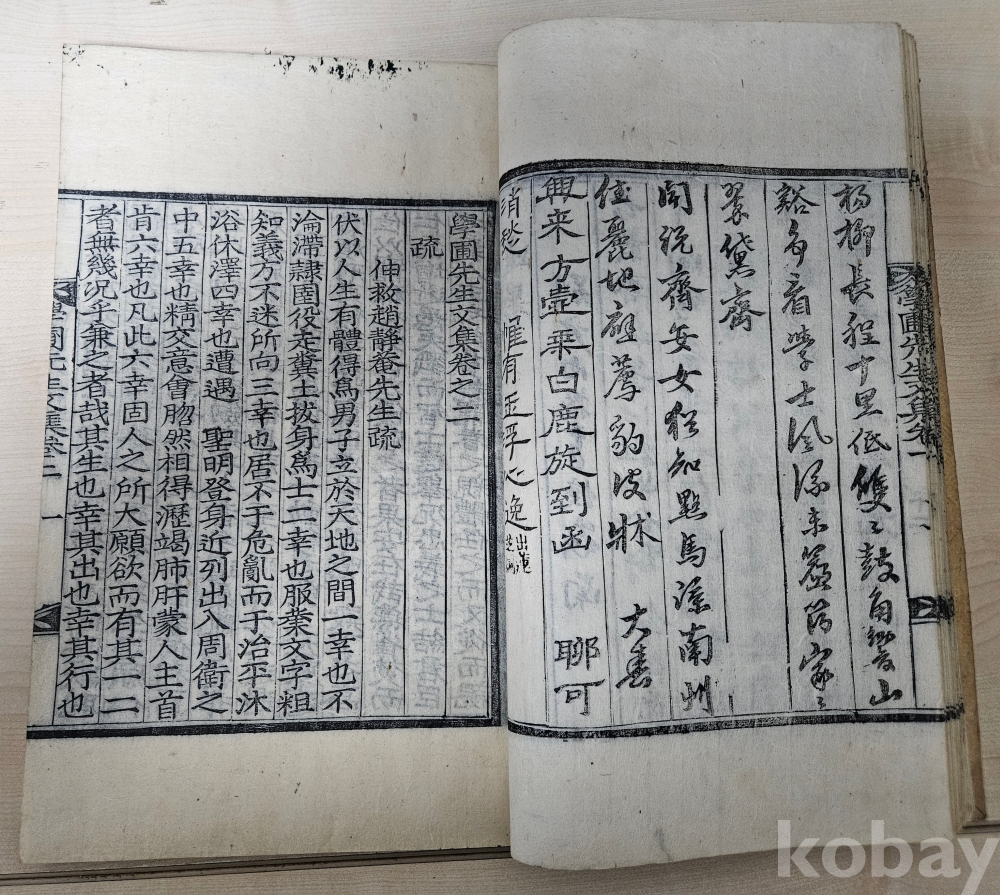 學圃先生文集卷一
楊柳長程十里低雙〻鼓角響山
谿多看學士風流家〻
翠黛齊
聞說齊安女猶知點馬深南州
佳麗地薦豹皮牀 大春
興来方壺乘白鹿旋到函 聊可
消愁 惟有玉浮心逸
學圃先生文集卷之二
疏
伸救趙靜菴先生疏
伏以人生有體得爲男子立於天地之間一幸也不
淪滯隷圉役走糞土拔身爲士二幸也服業文字粗
知義方不迷所向三幸也居不于危亂而于治平沐
浴休澤四幸也遭遇 聖明登身近列出入周衛之
中五幸也精交意會脗然相得瀝竭肺肝蒙人主首
肯六幸也凡此六幸固人之所大願欲而有其一二
者無幾況乎兼之者哉其生也幸其出也幸其行也
學圃先生文集卷二 一
kobay